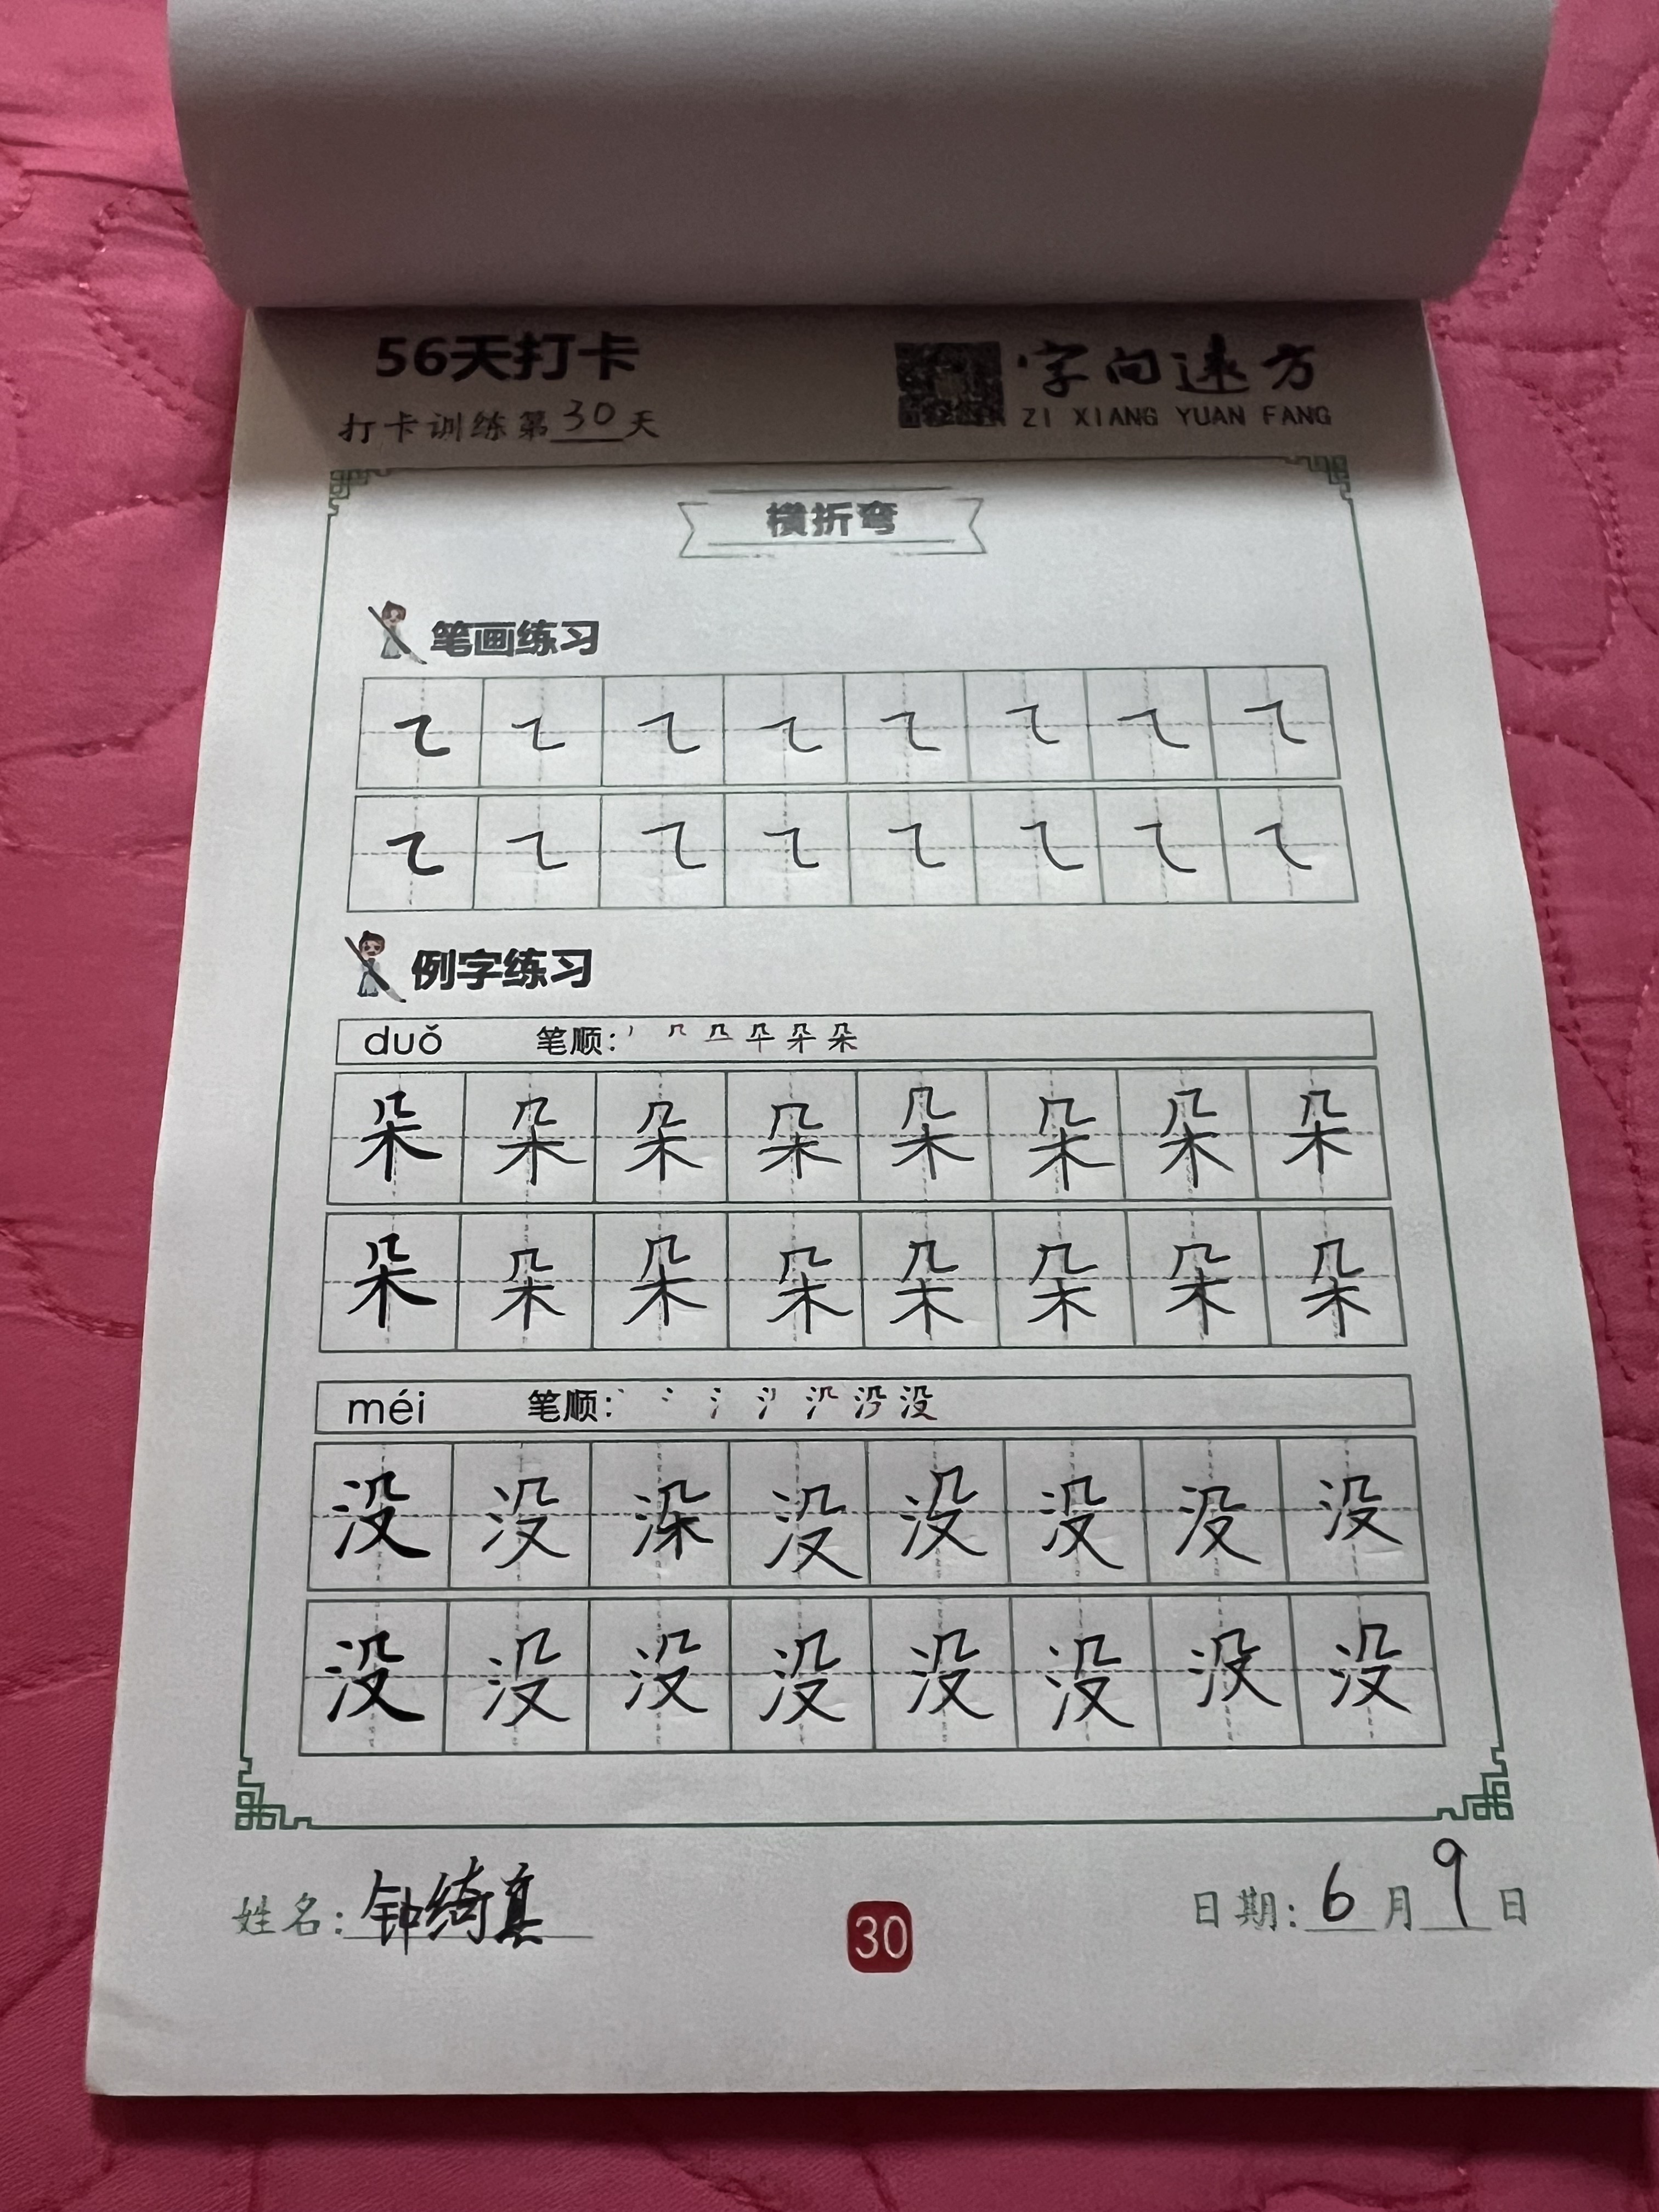 56天打卡
字向远方
打卡训练第30天
ZI XIANG YUAN FANG
横折弯
笔画练习
㇍ ㇍ ㇍ ㇍ ㇍ ㇍ ㇍ ㇍
㇍ ㇍ ㇍ ㇍ ㇍ ㇍ ㇍ ㇍
例字练习
duǒ 笔顺:
朵 朵 朵 朵 朵 朵 朵 朵
朵 朵 朵 朵 朵 朵 朵 朵
méi 笔顺:
没 没 深 没 没 没 没 没
没 没 没 没 没 没 没 没
姓名:钟绮真
30
日期:6月9日